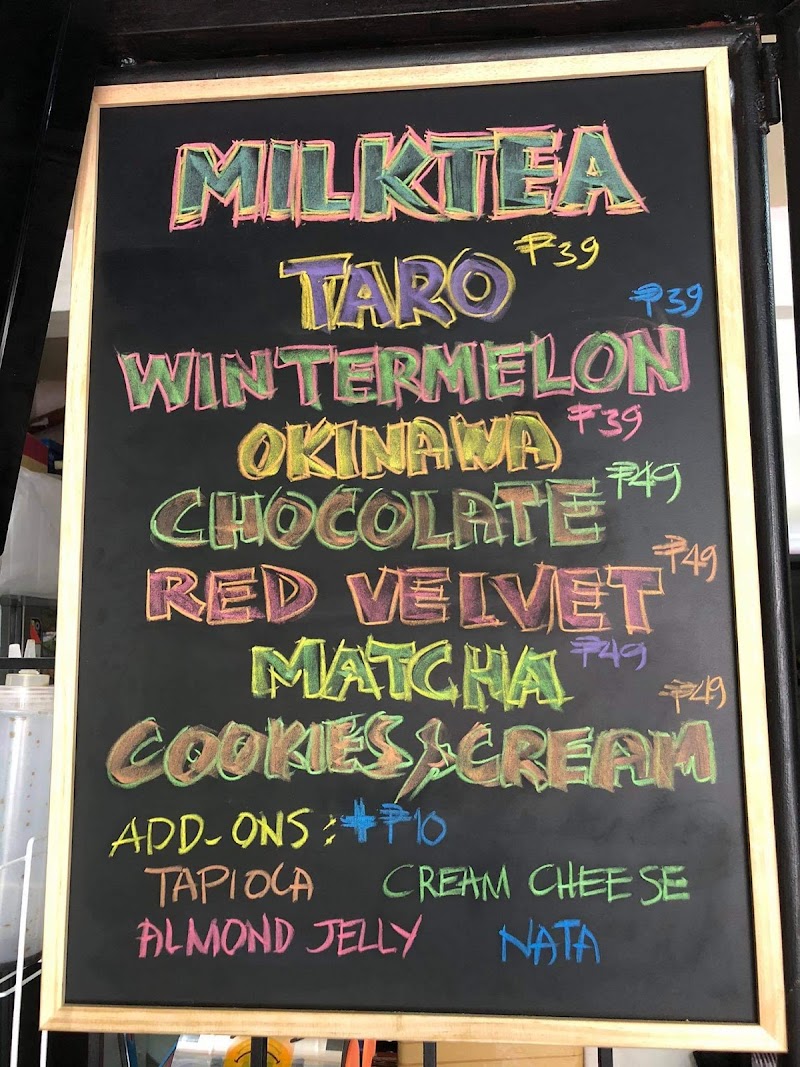 MILKTEA
TARO ₱39
WINTERMELON ₱39
OKINAWA ₱39
CHOCOLATE ₱49
RED VELVET ₱49
MATCHA ₱49
COOKIES & CREAM ₱49
ADD-ONS: +₱10
TAPIOCA CREAM CHEESE
ALMOND JELLY NATA